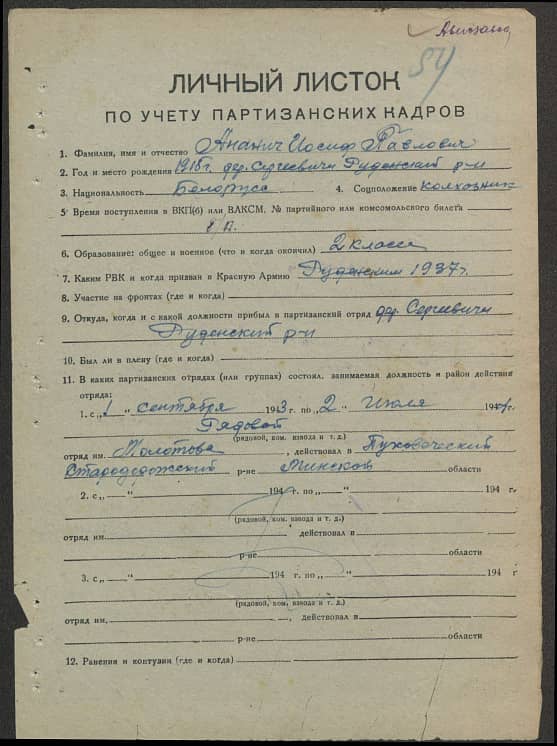 54
ЛИЧНЫЙ ЛИСТОК
ПО УЧЕТУ ПАРТИЗАНСКИХ КАДРОВ
1. Фамилия, имя и отчество Ананич Иосиф Павлович
2. Год и место рождения 1915г. дер. Сергеевичи Руденский р-н
3. Национальность Белорусс 4. Соцположение колхозник
5. Время поступления в ВКП(б) или ВЛКСМ, № партийного или комсомольского билета
б/п.
6. Образование: общее и военное (что и когда окончил) 2 класса
7. Каким РВК и когда призван в Красную Армию Руденским 1937г.
8. Участие на фронтах (где и когда)
9. Откуда, когда и с какой должности прибыл в партизанский отряд дер. Сергеевичи
Руденский р-н
10. Был ли в плену (где и когда)
11. В каких партизанских отрядах (или группах) состоял, занимаемая должность и район действия
отряда:
1. с „1" сентября 1943 г. по „2" июля 1944г.
Рядовой
(рядовой, ком. взвода и т. д.)
отряд им. Молотова, действовал в Пуховический
Стародорожский р-не Минской области
2. с „ " 194 г. по „ " 194 г.
(рядовой, ком. взвода и т. д.)
отряд им. действовал в
р-не области
3. с „ " 194 г. по „ " 194 г
(рядовой, ком. взвода и т. д.)
отряд им. , действовал в
р-не области
12. Ранения и контузии (где и когда)